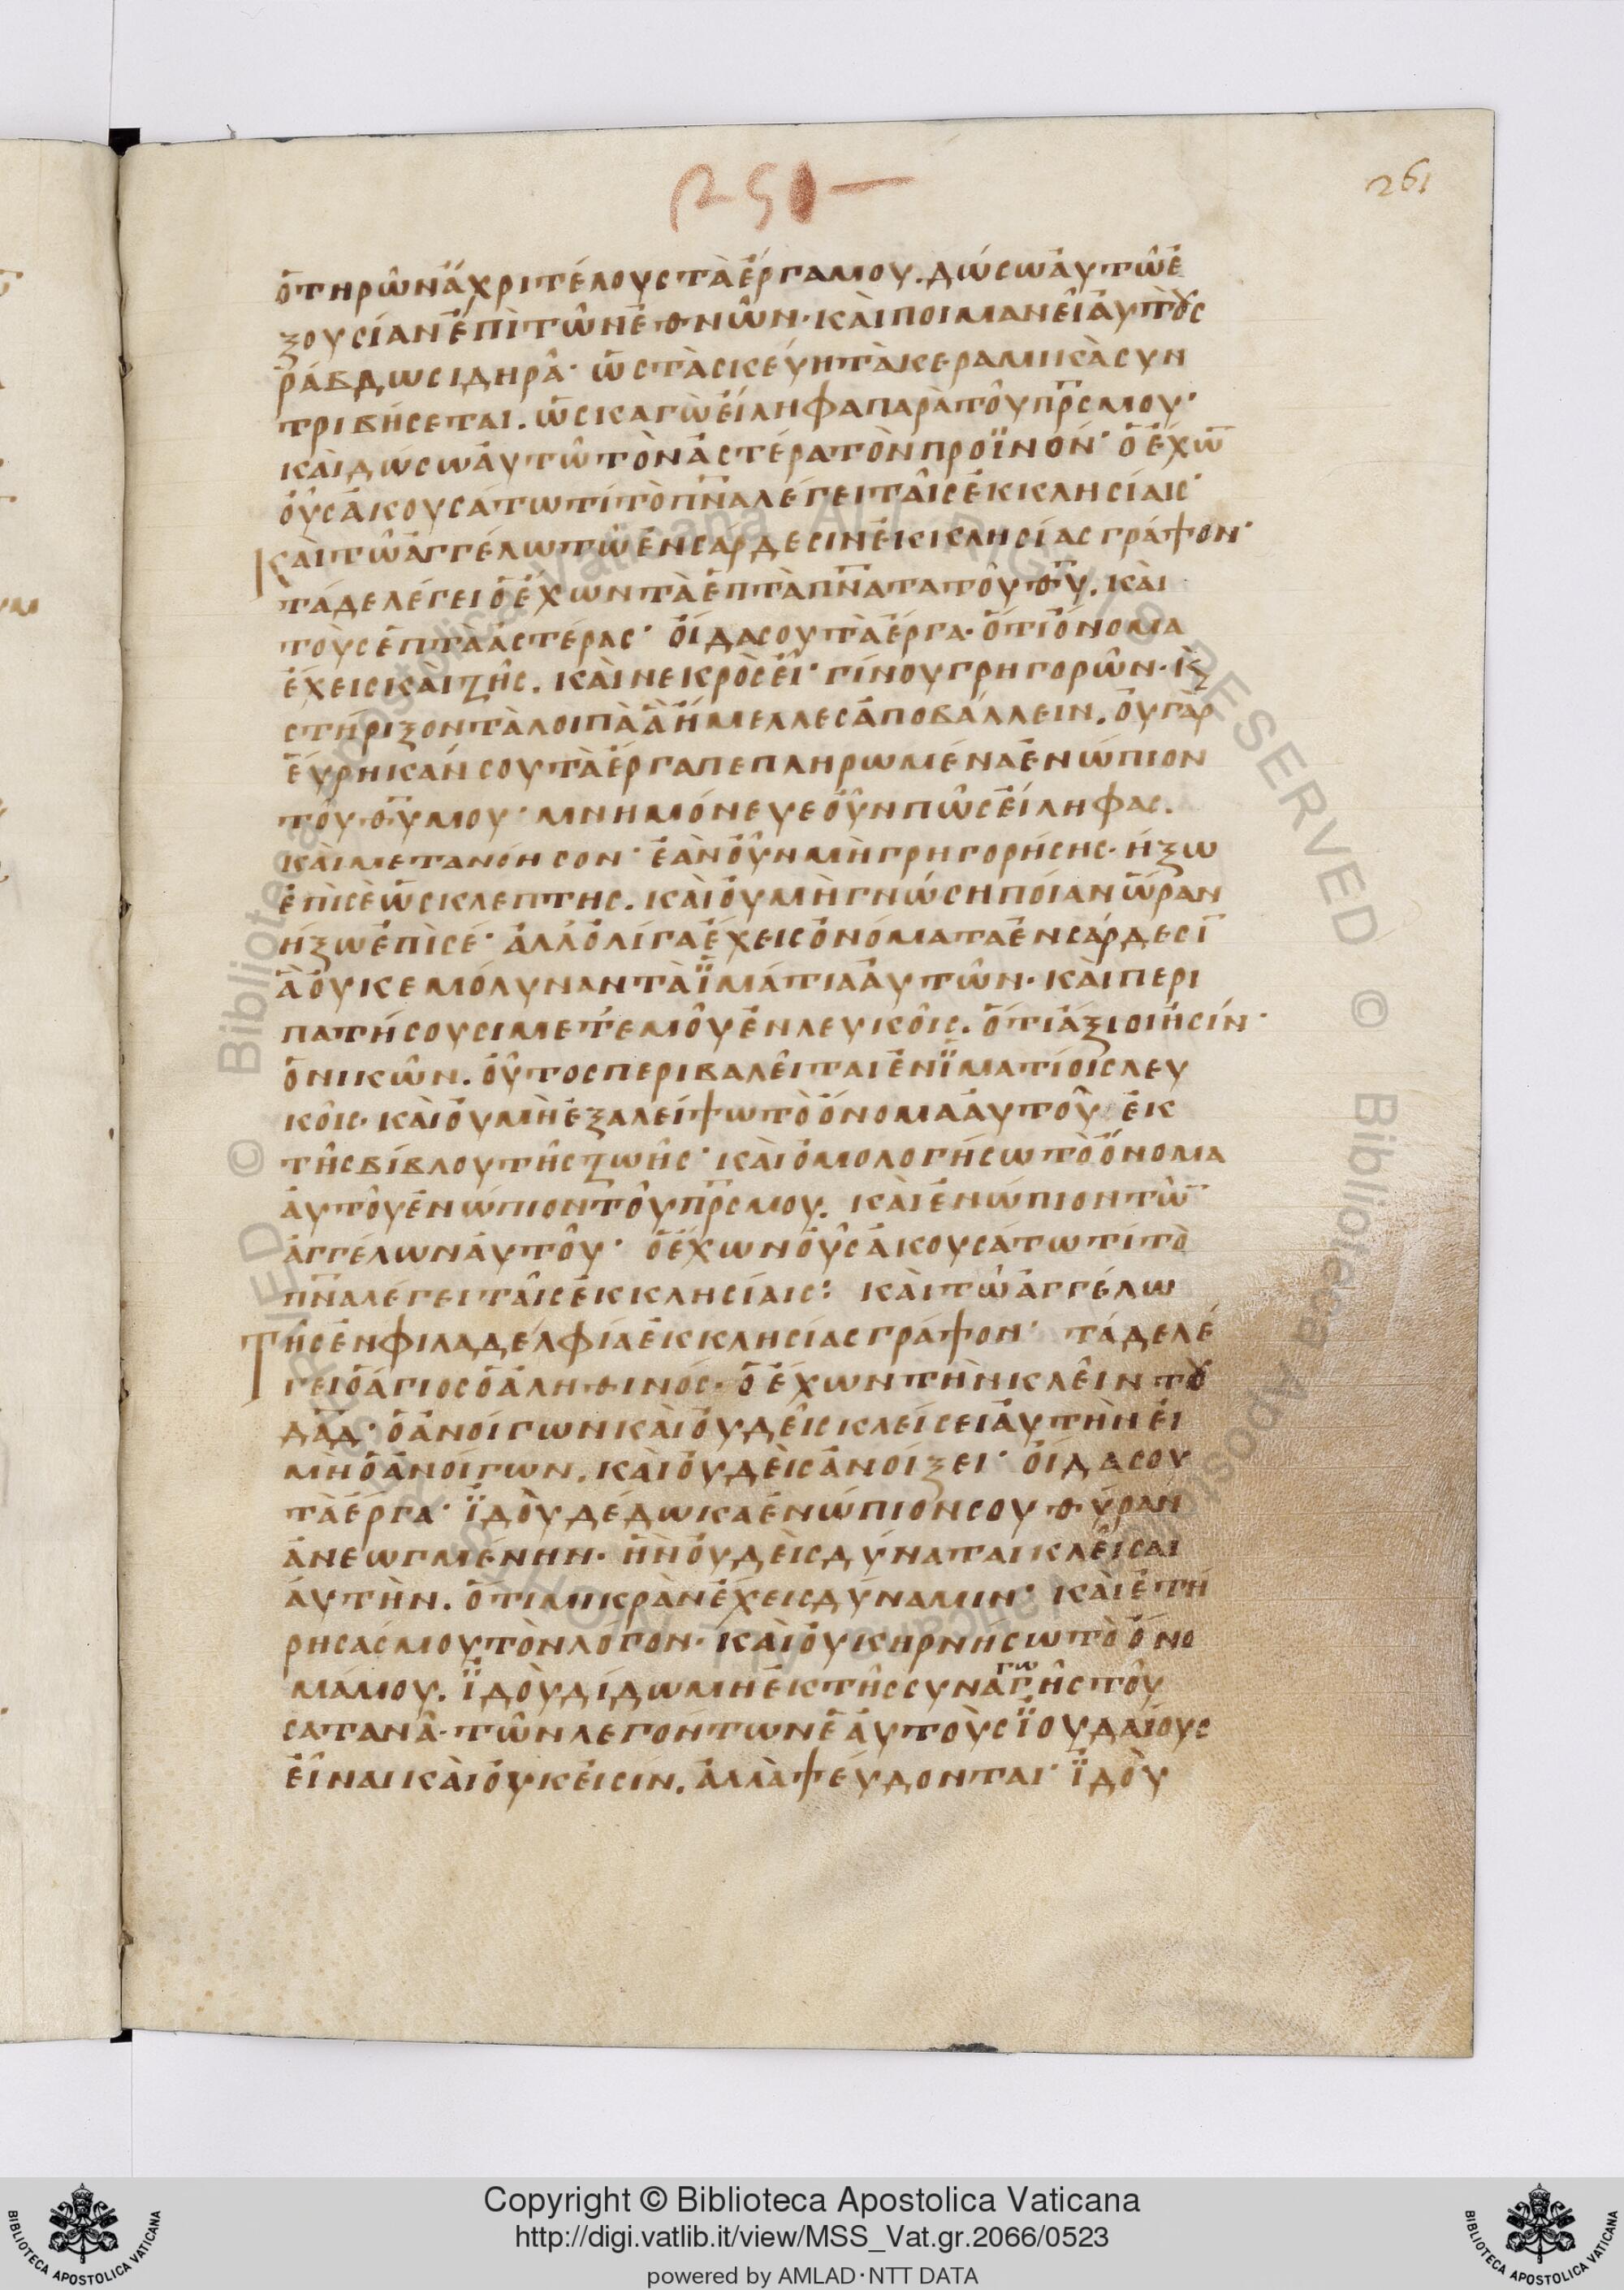 251
261
ὁ τηρῶν ἄχρι τέλους τὰ ἔργα μου. δώσω ἀυτῶ ἐ
ξουσίαν ἐπὶ τῶν ἐθνῶν· καὶ ποιμανεῖ ἀυτοὺς
ῥάβδω σιδηρᾶ· ὡς τὰ σκέυη τὰ κεραμικὰ συν
τριβήσεται. ὡς καγὼ ἔίληφα παρὰ τοῦ π̅ρ̅ς̅ μου·
καὶ δωσω ἀυτῶ τὸν ἀστέρα τὸν προϊνόν· ὁ ἔχω̅
ὀῦς ἀκουσάτω τί τὸ π̅ν̅α̅ λέγει ταῖς ἐκκλησίαις·
Καὶ τῶ ἀγγέλω τῶ ἐν σάρδεσιν ἐκκλησίας γράψον·
τάδε λέγει ὁ ἔχων τὰ ἑπτὰ π̅ν̅α̅τα τοῦ θ̅υ̅. καὶ
τοὺς ἑπτὰ ἀστέρας· ὀίδα σου τὰ ἔργα· ὅτι ὄνομα
ἔχεις καὶ ζῆς. καὶ νεκρὸς ἐῖ· γίνου γρηγορῶν· ϗ
στήριξον τὰ λοιπὰ ἃ ἤμελλες ἀποβάλλειν. ὀυ γὰρ
ἕυρηκάν σου τὰ ἔργα πεπληρωμένα ἐνώπιον
τοῦ θ̅υ̅ μου· μνημόνευε ὀῦν πῶς ἔίληφας.
καὶ μετανόησον· ἐὰν ὀῦν μὴ γρηγορήσης· ἥξω
ἐπὶ σὲ ὡς κλεπτης. καὶ ὀυ μὴ γνώση ποίαν ὥραν
ἥξω ἐπὶ σέ· ἀλλ ὀλίγα ἔχεις ὀνόματα ἐν σάρδεσι̅
ἃ ὀυκ εμόλυναν τὰ ϊμάτια ἀυτῶν· καὶ περι
πατήσουσι μετ εμοῦ ἐν λευκοῖς. ὅτι ἄξιοι ἠσίν·
ὁ νικῶν. ὀῦτος περιβαλεῖται ἐν ϊματίοις λευ
κοῖς· καὶ ὀυ μὴ ἐξαλείψω τὸ ὄνομα ἀυτοῦ ἐκ
τῆς βίβλου τῆς ζωῆς· καὶ ὁμολογήσω τὸ ὄνομα
ἀυτοῦ ἐνώπιον τοῦ π̅ρ̅ς̅ μου. καὶ ἐνώπιον τῶ̅
ἀγγέλων ἀυτοῦ· ὁ ἔχων ὀῦς ἀκουσάτω τί τὸ
π̅ν̅α̅ λέγει ταῖς ἐκκλησίαις: καὶ τῶ ἀγγέλω
Τῆς ἐν φιλαδελφία ἐκκλησίας γράψον· τάδε λέ
γει ὁ ἅγιος ὁ ἀληθινός· ὁ ἔχων τὴν κλεῖν τȣ
δ̅α̅δ̅· ὁ ἀνοίγων καὶ ὀυδεὶς κλείσει ἀυτὴν ἐι
μὴ ὁ ἀνοίγων. καὶ ὀυδεὶς ἀνοίξει· ὀίδα σου
τὰ ἔργα· ϊδοὺ δέδωκα ἐνώπιον σου θύραν
ἀνεωγμένην· ἣν ὀυδεὶς δύναται κλεῖσαι
ἀυτὴν. ὅτι μικρὰν ἔχεις δύναμιν· καὶ ἐτή
ρησας μου τὸν λόγον· καὶ ὀυκ ηρνήσω τὸ ὄνο
μά μου. ϊδοὺ δίδωμη ἐκ τῆς συναγωγῆς τοῦ
σατανᾶ· τῶν λεγόντων ἑαυτοὺς ϊουδαίους
ἐῖναι καὶ ὀυκ ἐισίν. ἀλλὰ ψέυδονται· ϊδοὺ
Copyright © Biblioteca Apostolica Vaticana
http://digi.vatlib.it/view/MSS_Vat.gr.2066/0523
powered by AMLAD·NTT DATA
BIBLIOTECA APOSTOLICA VATICANA
BIBLIOTECA APOSTOLICA VATICANA